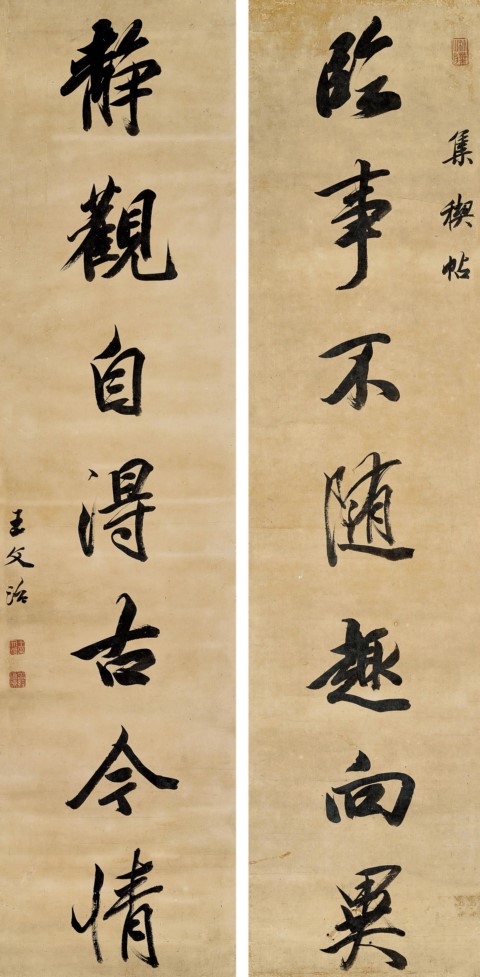 集稧帖
臨事不随趣向異
靜觀自得古今情
王文治